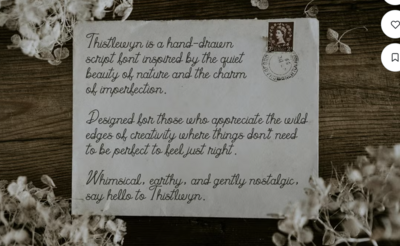 Thistlewyn is a hand-drawn
script font inspired by the quiet
beauty of nature and the charm
of imperfection.
Designed for those who appreciate the wild
edges of creativity where things don't need
to be perfect to feel just right.
Whimsical, earthy, and gently nostalgic,
say hello to Thistlwyn.